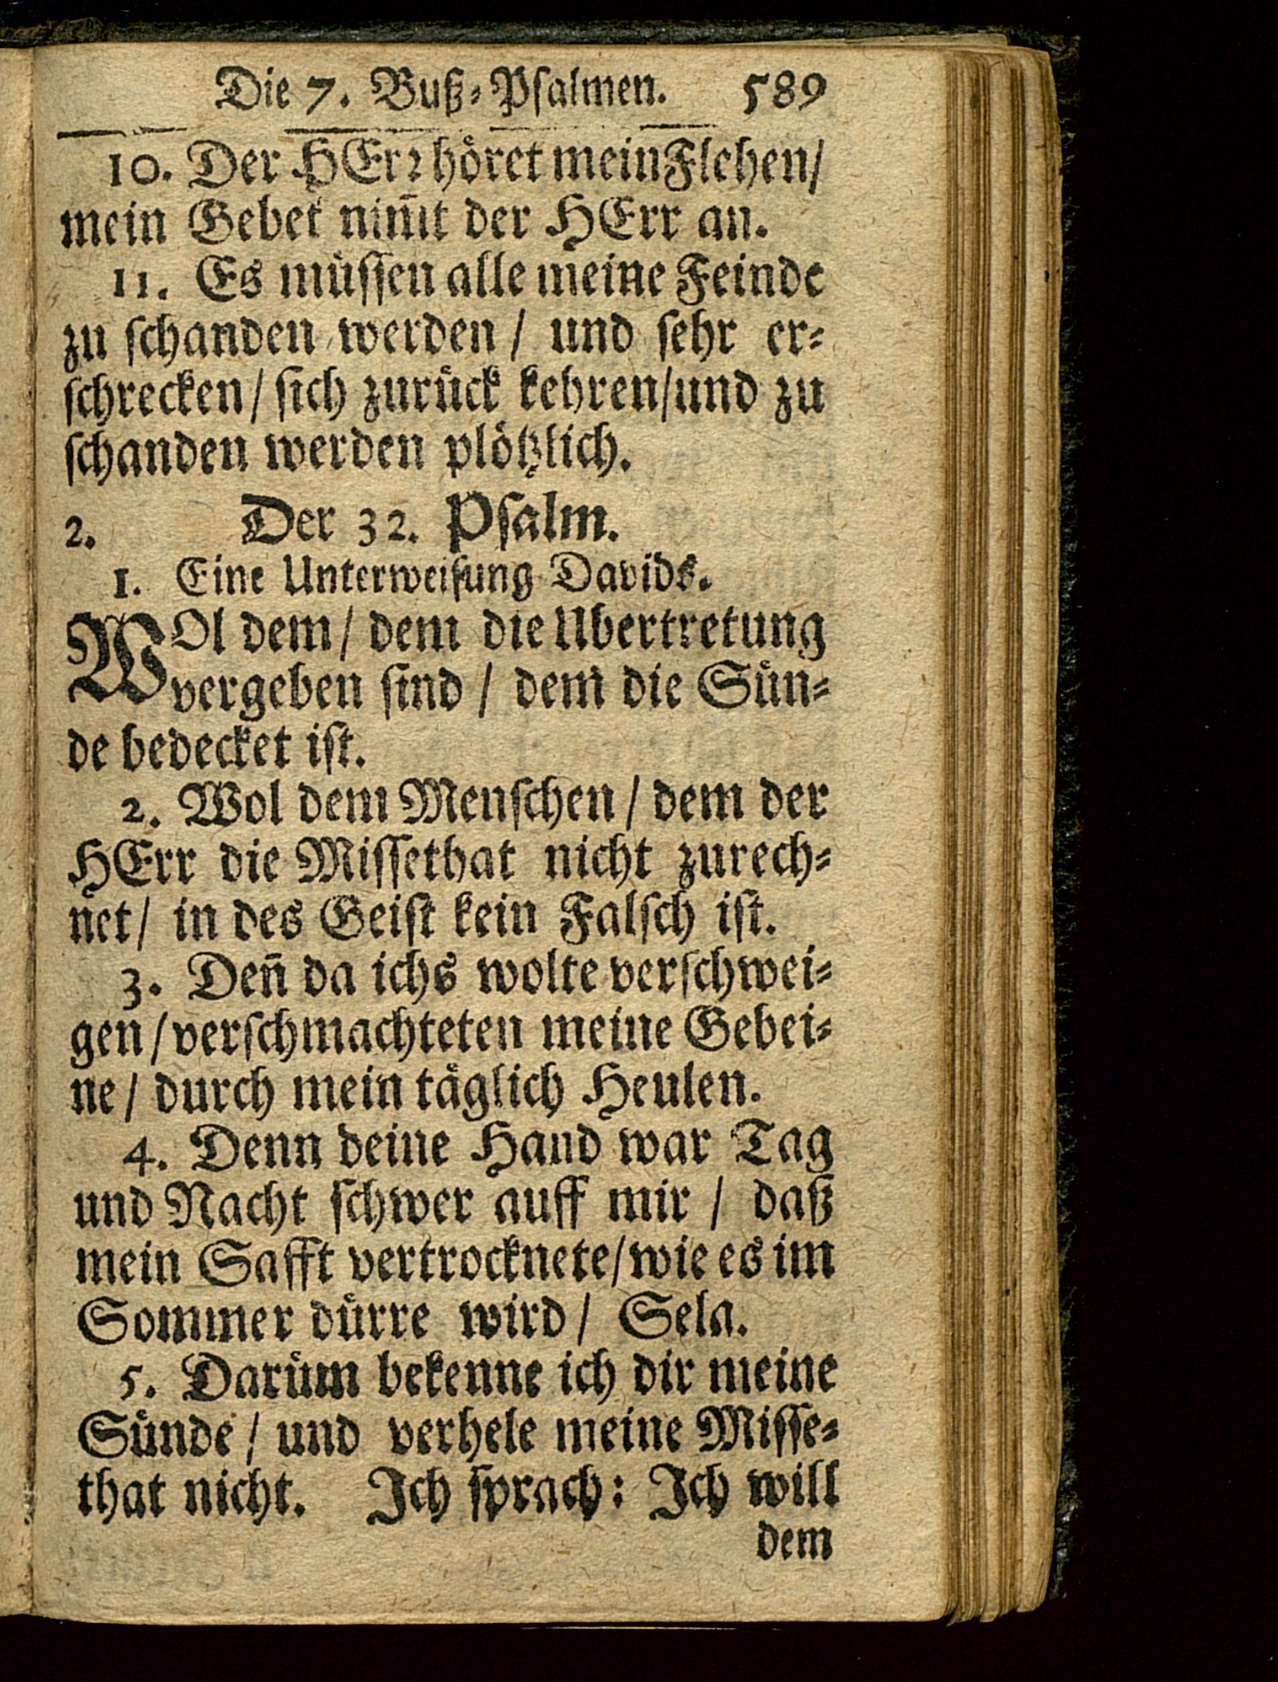 Die 7. Buß-Psalmen. 589
10. Der HErr höret mein Flehen/
mein Gebet nim̃t der HErr an.
11. Es müssen alle meine Feinde
zu schanden werden / und sehr er-
schrecken/ sich zurück kehren/und zu
schanden werden plötzlich.
2. Der 32. Psalm.
1. Eine Unterweisung Davids.
WOl dem/ dem die Ubertretung
vergeben sind / dem die Sün-
de bedecket ist.
2. Wol dem Menschen / dem der
HErr die Missethat nicht zurech-
net/ in des Geist kein Falsch ist.
3. Deñ da ichs wolte verschwei-
gen/verschmachteten meine Gebei-
ne/ durch mein täglich Heulen.
4. Denn deine Hand war Tag
und Nacht schwer auff mir / daß
mein Safft vertrocknete/wie es im
Sommer dürre wird/ Sela.
5. Darüm bekenne ich dir meine
Sünde/ und verhele meine Misse-
that nicht. Ich sprach: Ich will
dem